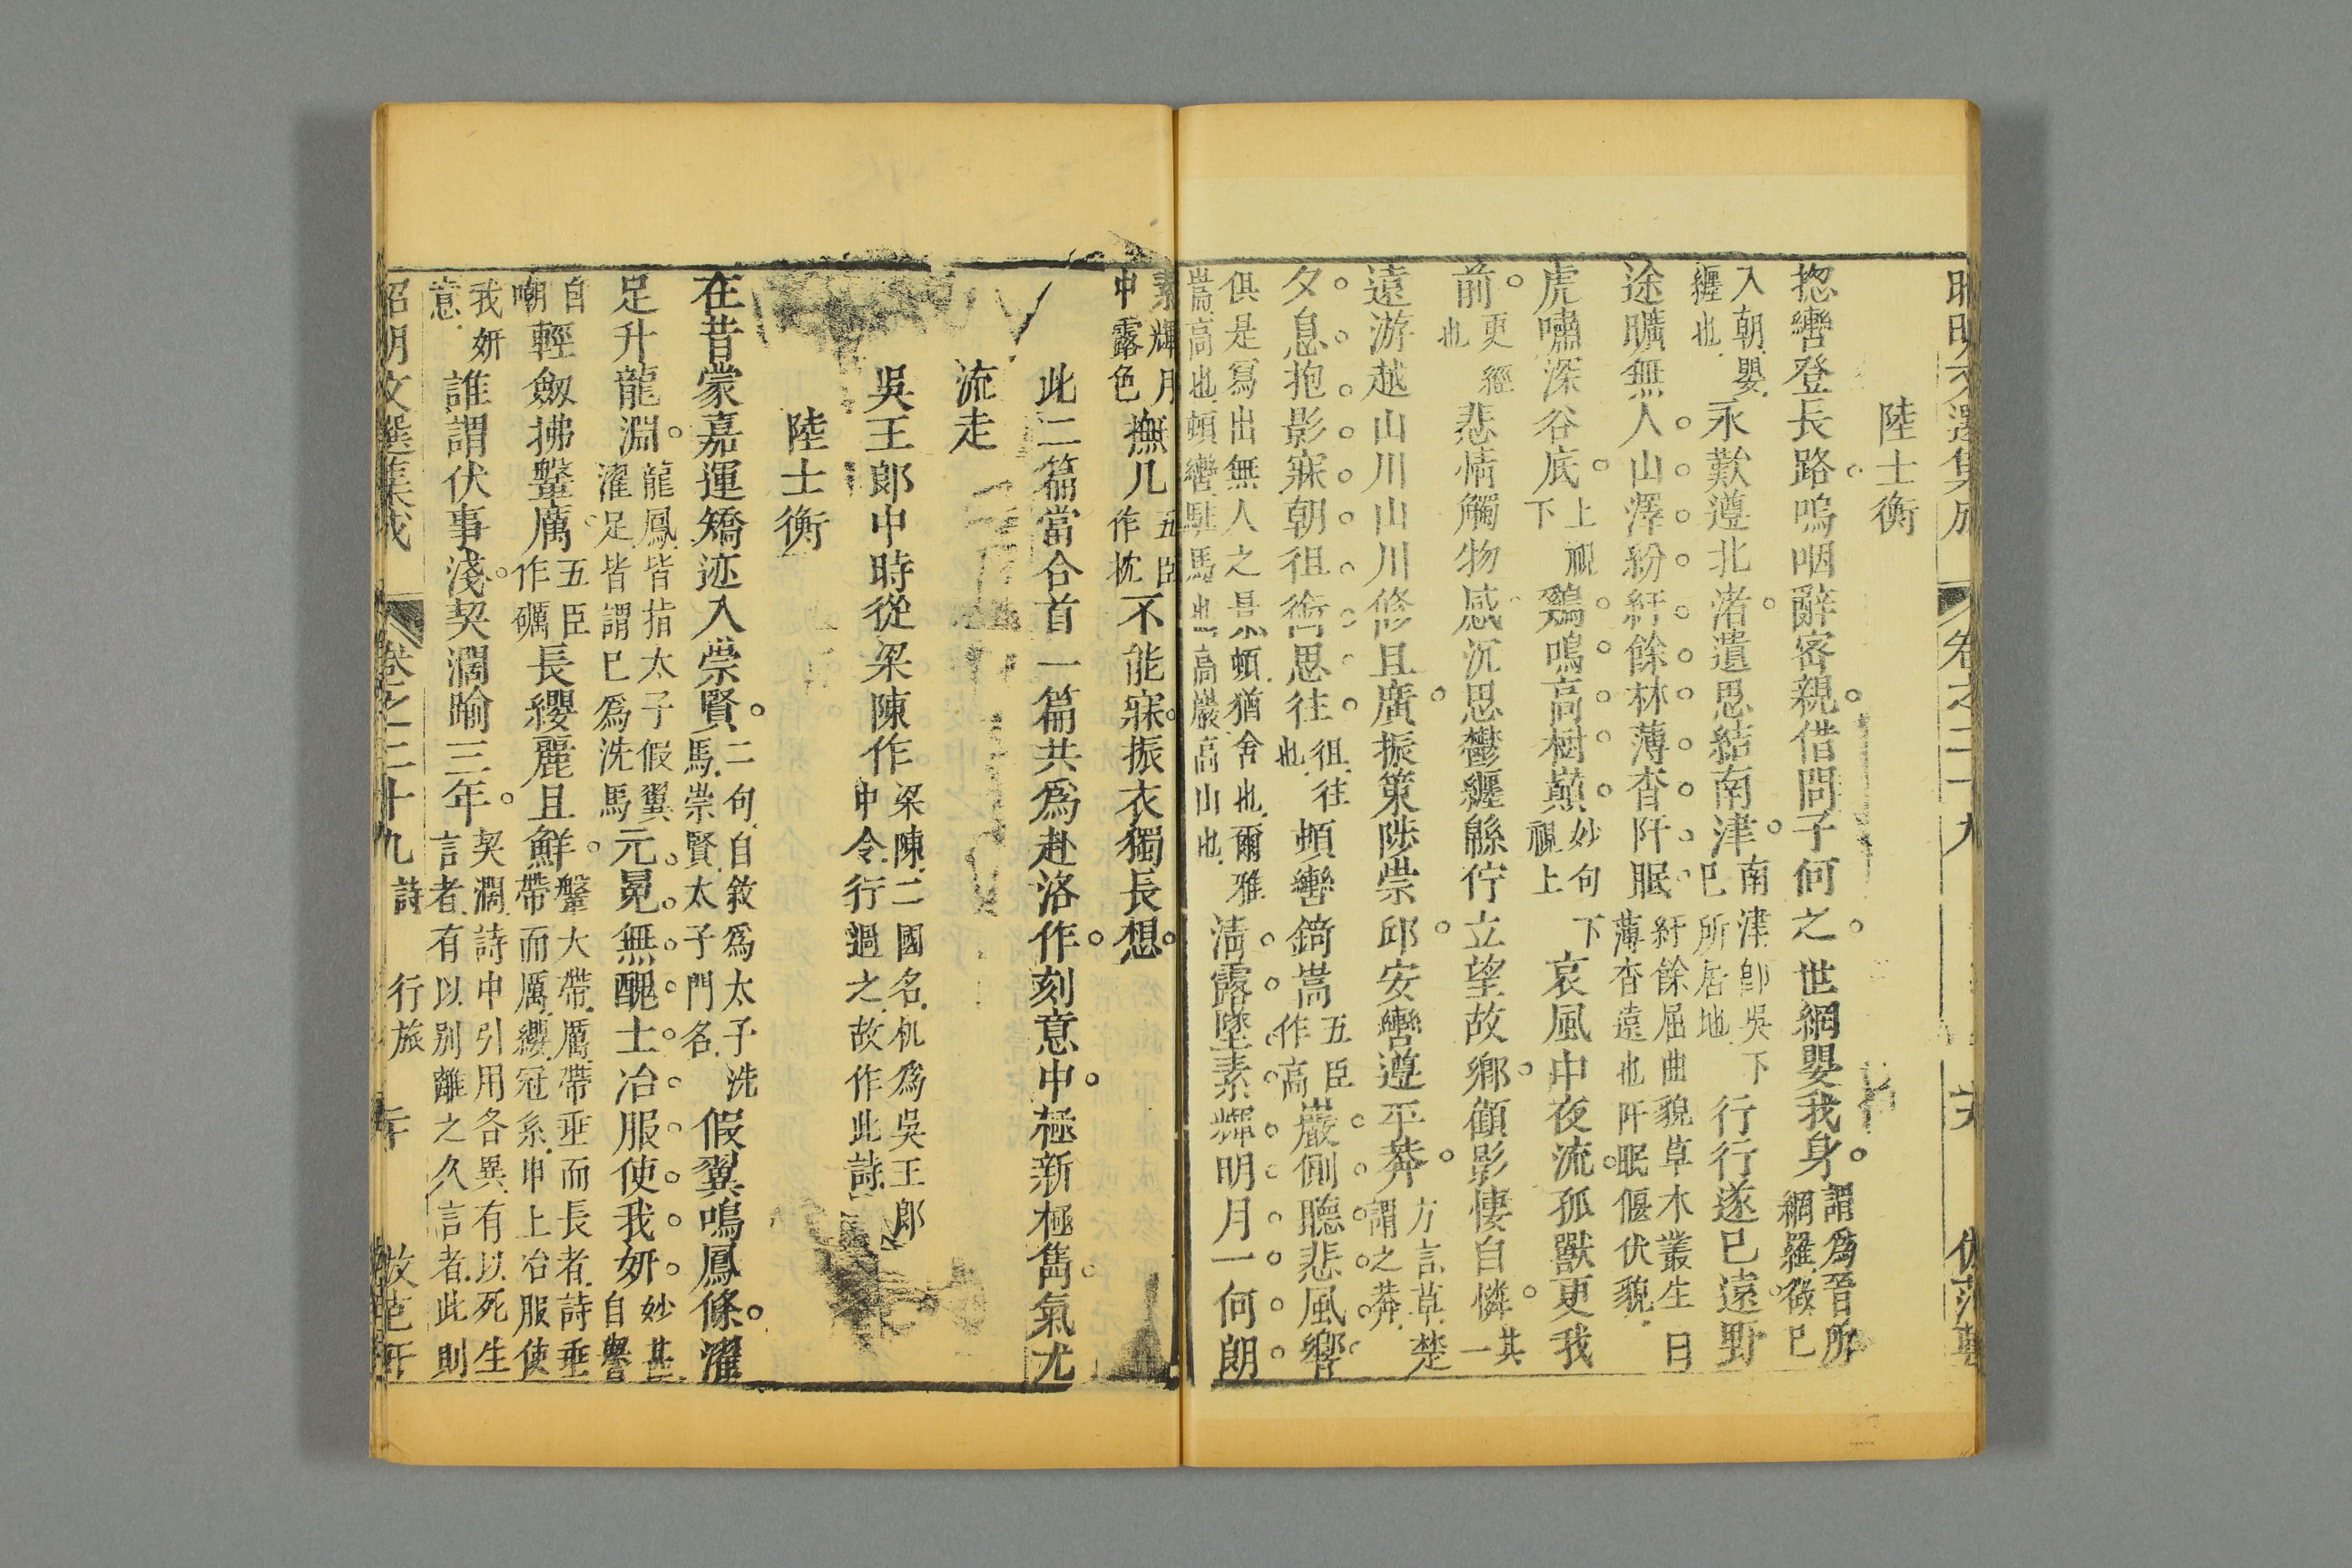 昭明文選集成 卷之二十九
陸士衡
揔轡登長路嗚咽辭密親借問子何之世網嬰我身謂爲晉所網羅徵已
入朝嬰纒也永歎遵北渚遺思結南津南津卽吳下已所居地行行遂已遠野
途曠無人山澤紛紆餘林薄杳阡眠紆餘屈曲貌草木叢生曰薄杳遠也阡眠偃伏貌
虎嘯深谷底上視下鷄鳴高樹巔妙句下視上哀風中夜流孤獸更我
前更經也悲情觸物感沉思鬱纒緜佇立望故鄉顧影悽自憐其一
遠游越山川山川修且廣振策陟崇邱安轡遵平莽方言草楚謂之莽
夕息抱影寐朝徂銜思往徂往也頓轡錡嵩五臣作高巖側聽悲風響
俱是寫出無人之景頓猶舍也爾雅嵩高也頓轡駐馬也高巖高山也淸露墜素輝明月一何朗
素輝月中露色撫几五臣作枕不能寐振衣獨長想
此二篇當合首一篇共爲赴洛作刻意中極新極雋氣尤
流走
吳王郞中時從梁陳作梁陳二國名机爲吳王郞中令行過之故作此詩
陸士衡
在昔蒙嘉運矯迹入崇賢二句自敘爲太子洗馬崇賢太子門名假翼鳴鳳條濯
足升龍淵龍鳳皆指太子假翼濯足皆謂已爲洗馬元冕無醜士冶服使我妍妙甚自譽
自嘲輕劒拂鞶厲五臣作礪長纓麗且鮮鞶大帶厲帶垂而長者詩垂帶而厲纓冠系申上冶服使
我妍意誰謂伏事淺契濶喻三年契濶詩中引用各異有以死生言者有以別離之久言者此則
昭明文選集成 卷之二十九 詩 行旅